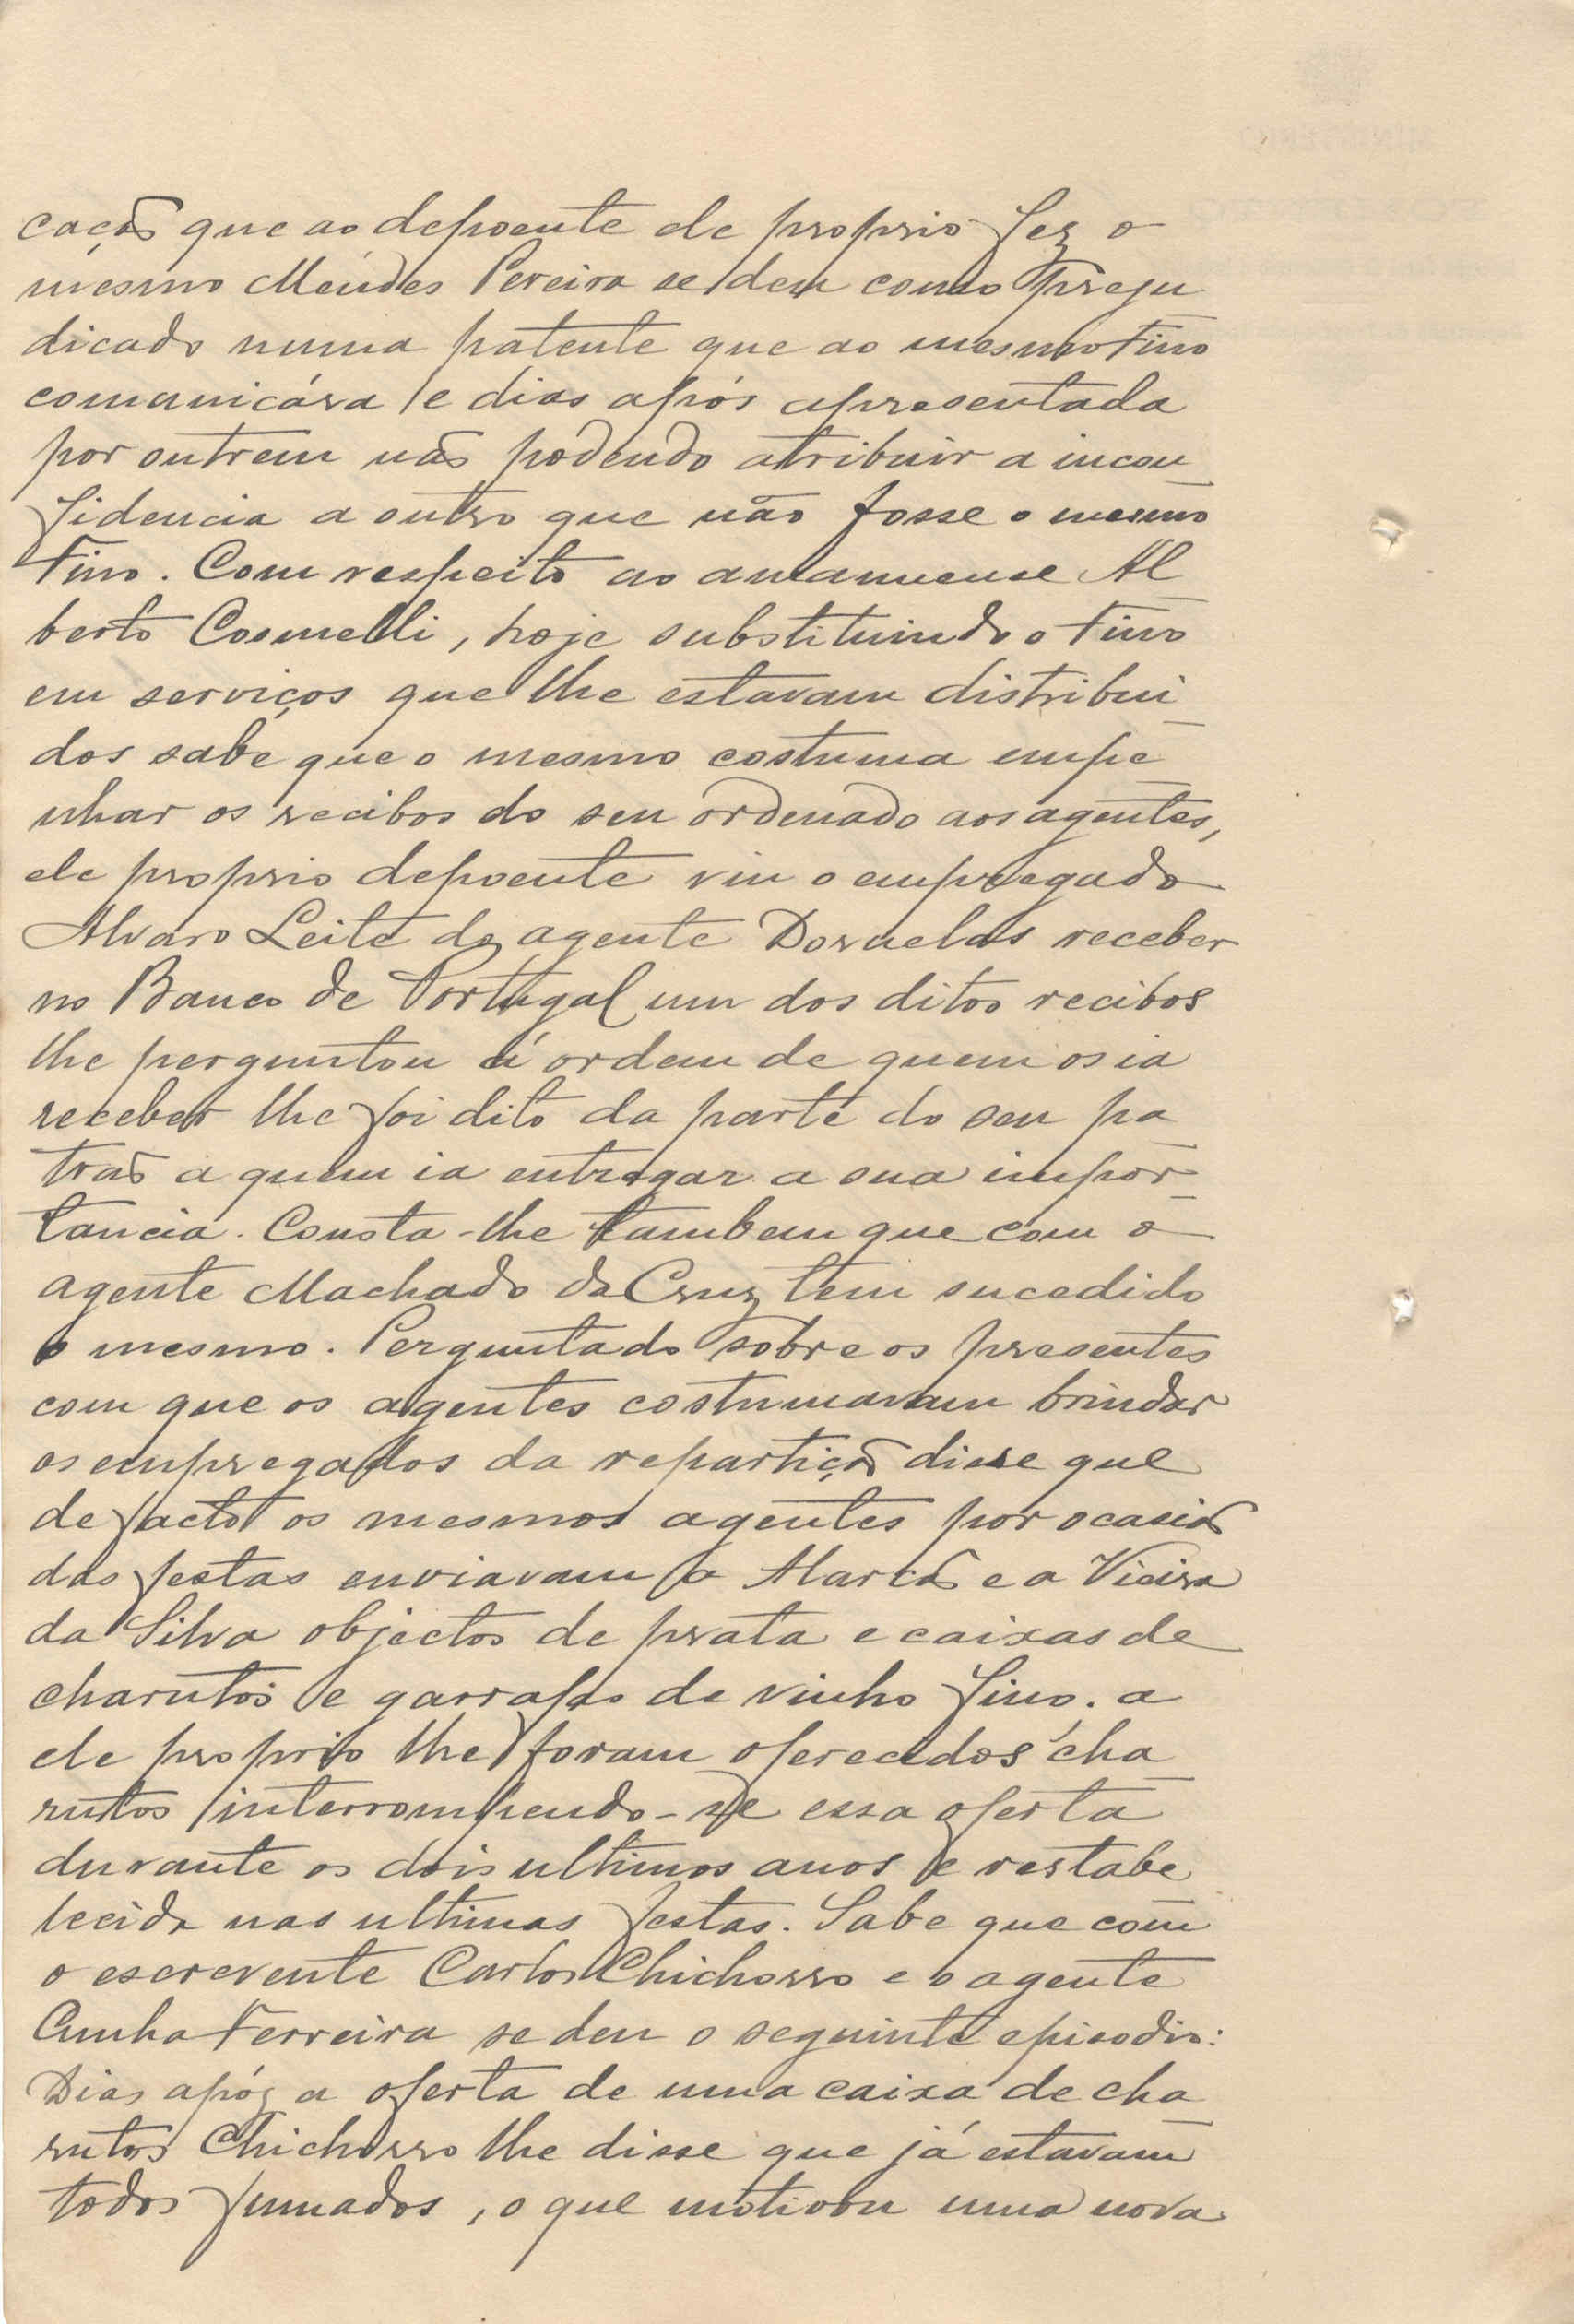 cação que ao depoente ele proprio fez o
mesmo Mendes Pereira se deu como preju
dicado numa patente que ao mesmo Fino
comunicára e dias após apresentada
por outrem não podendo atribuir a incon
fidencia a outro que não fosse o mesmo
Fino. Com respeito ao amanuense Al
berto Cosmelli, hoje substituindo o Fino
em serviços que lhe estavam distribui
dos sabe que o mesmo costuma empe
nhar os recibos do seu ordenado aos agentes,
ele proprio depoente viu o empregado
Alvaro Leite do agente Dornelas receber
no Banco de Portugal um dos ditos recibos
lhe perguntou á ordem de quem os ia
receber lhe foi dito da parte do seu pa
trão a quem ia entregar a sua impor
tancia. Consta-lhe tambem que com o
agente Machado da Cruz tem sucedido
o mesmo. Perguntado sobre os presentes
com que os agentes costumavam brindar
os empregados da repartição disse que
de facto os mesmos agentes por ocasião
das festas enviavam a Marcão e a Vieira
da Silva objectos de prata e caixas de
charutos e garrafas de vinho fino. a
ele proprio lhe foram oferecidos cha
rutos interrompendo-se essa oferta
durante os dois ultimos anos e restabe
lecida nas ultimas festas. Sabe que com
o escrevente Carlos Chichorro e o agente
Cunha Ferreira se deu o seguinte episodio:
Dias apóz a oferta de uma caixa de cha
rutos Chichorro lhe disse que já estavam
todos fumados, o que motivou uma nova